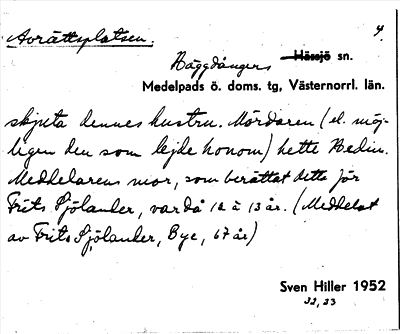 Avrättsplatsen. 4.
Häggdångers Hässjö sn.
Medelpads ö. doms. tg, Västernorrl. län.
skjuta dennes hustru. Mördaren (el. möj-
ligen den som lejde honom) hette Bedin.
Meddelarens mor, som berättat detta för
Frits Sjölander, var då 12 à 13 år. (Meddelat
av Frits Sjölander, Bye, 67 år)
Sven Hiller 1952
32, 33